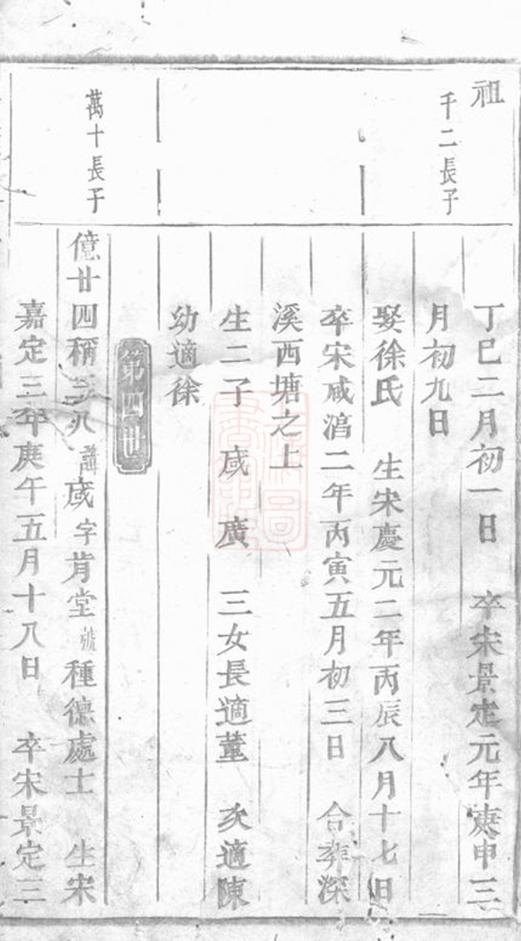 祖
千二長子
丁巳二月初一日　卒宋景定元年庚申三
月初九日
娶徐氏　生宋慶元二年丙辰八月十七日
卒宋咸淳二年丙寅五月初三日　合葬深
溪西塘之上
生二子　宬　廣　三女長適董　次適陳
幼適徐
第四世
萬十長子
億廿四稱三八諱宬字肯堂號種德處士　生宋
嘉定三年庚午五月十八日　卒宋景定三